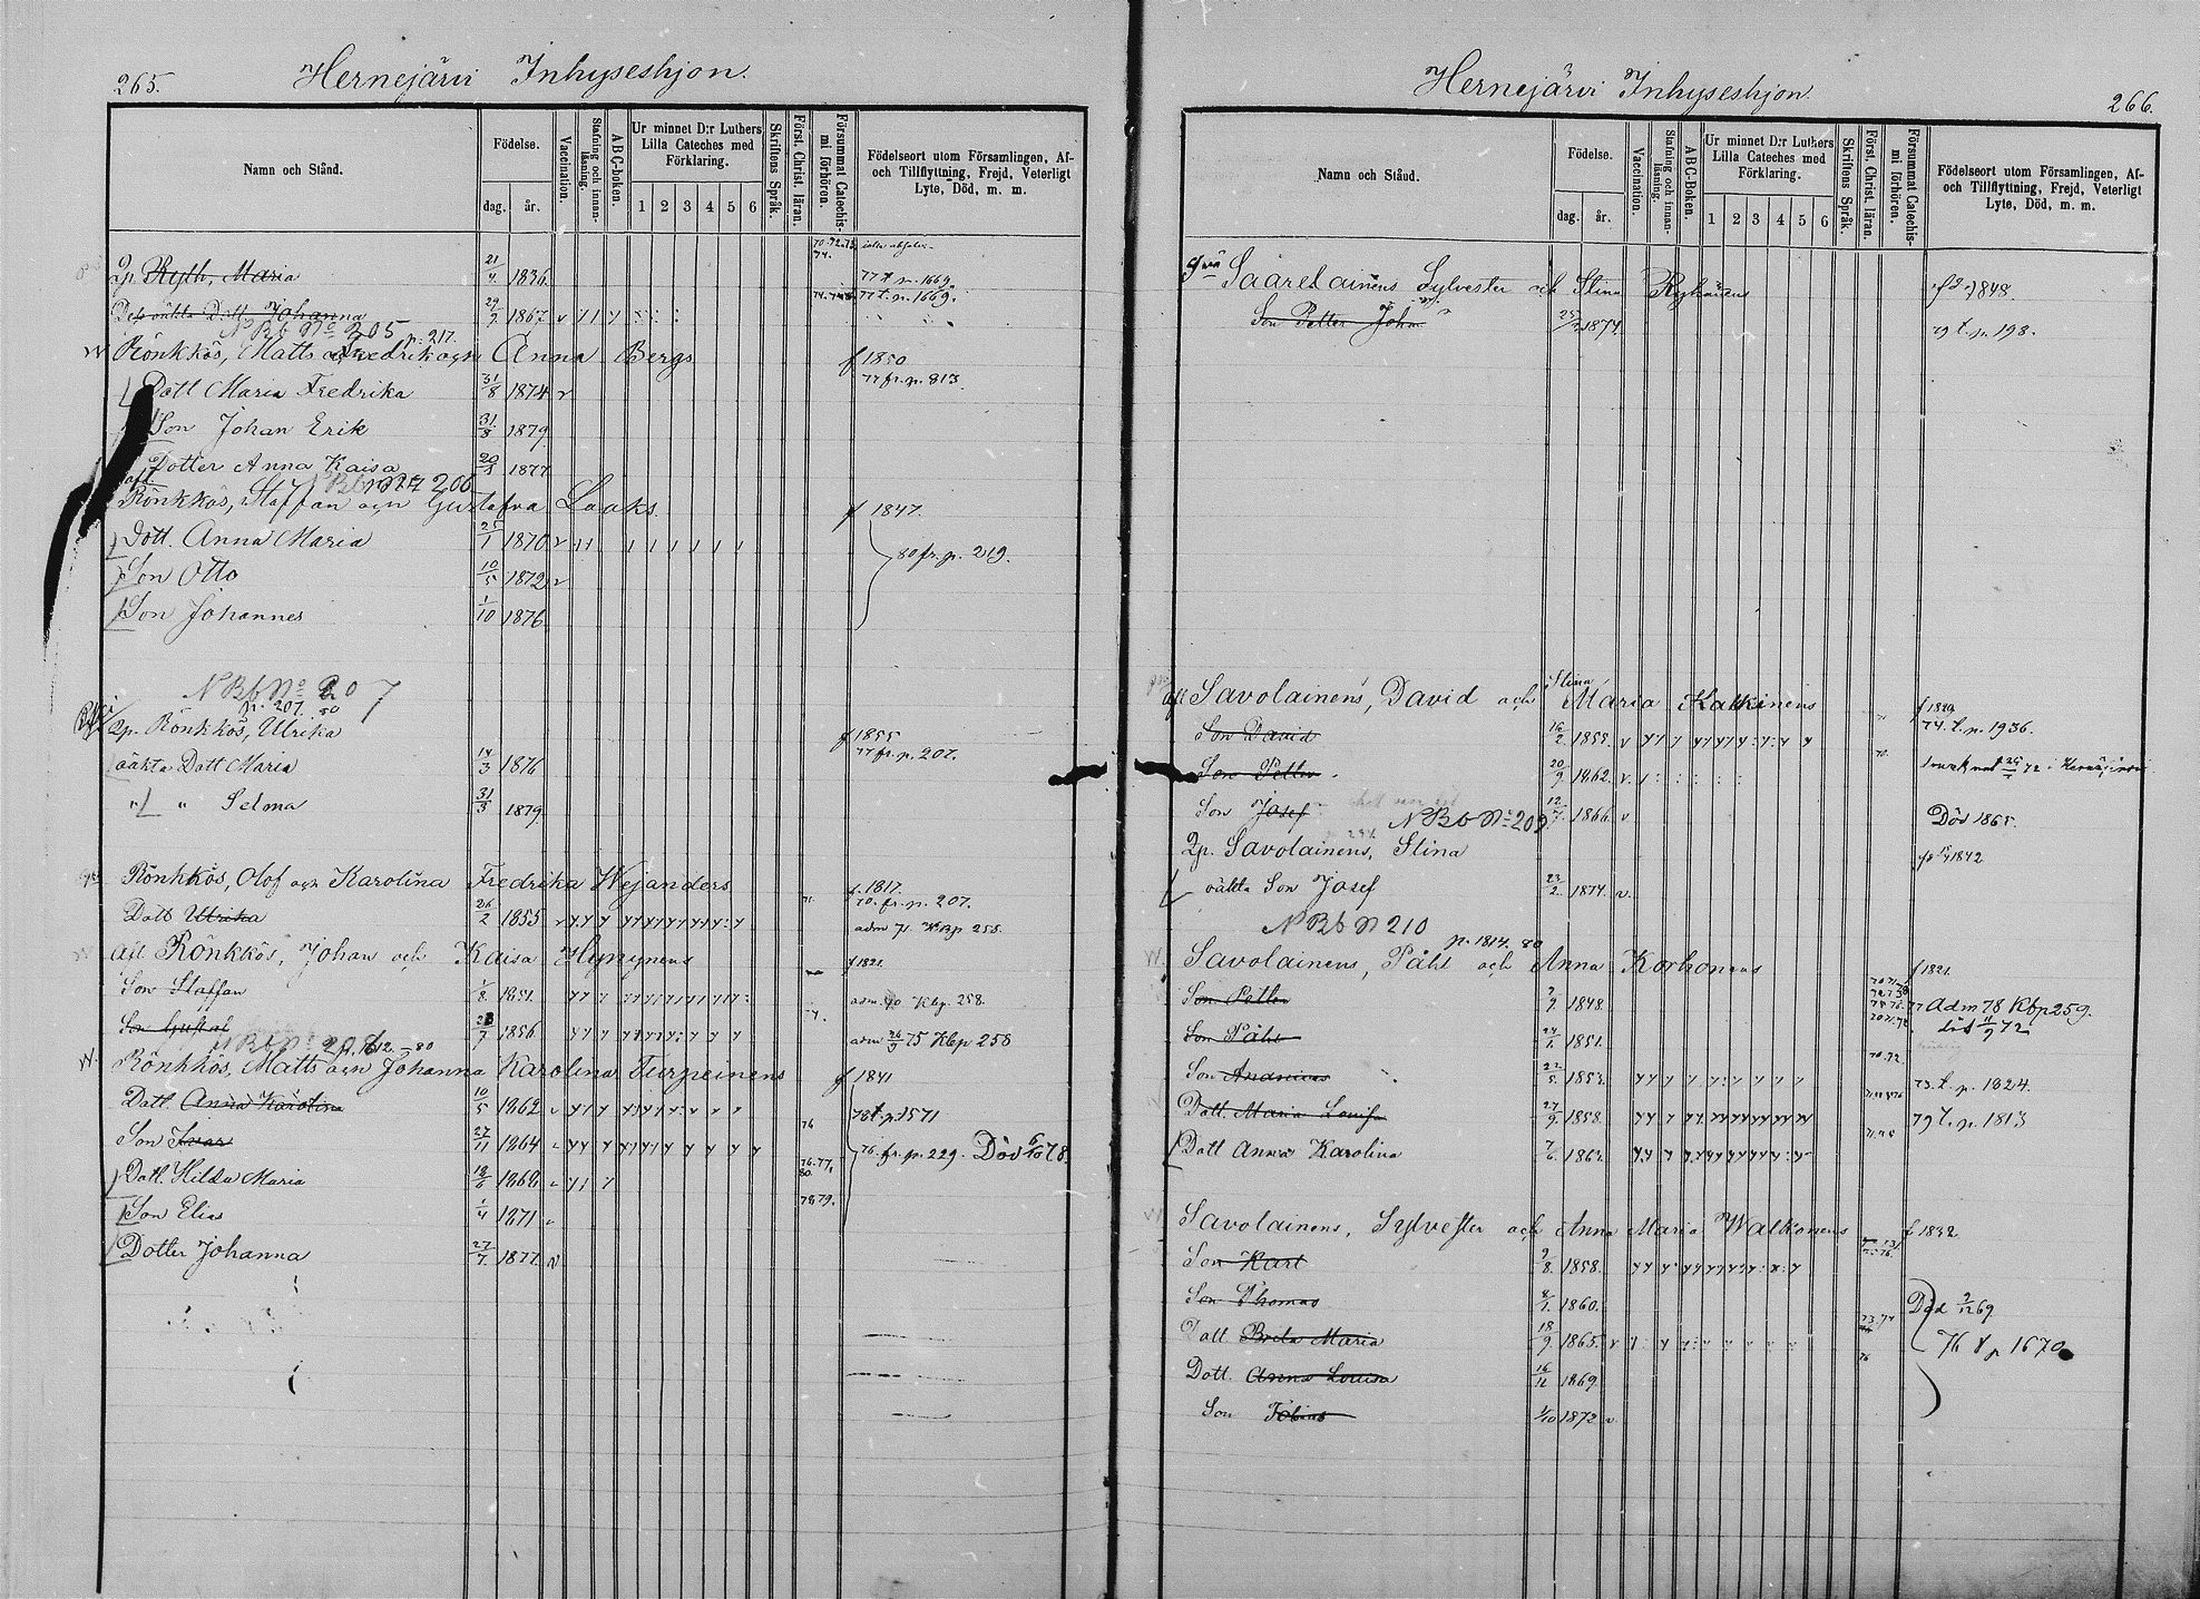 265.
Hernejärvi Inhyseshjon.
Namn och Stånd.
Födelse.
dag.
år.
Vaccination.
Stafning och innan-läsning.
ABC-boken.
Ur minnet D:r Luthers Lilla Cateches med Förklaring.
1 2 3 4 5 6
Skriftens Språk.
Först. Christ. läran.
Försummat Catechis-mi förhören.
Födelseort utom Församlingen, Af- och Tillflyttning, Frejd, Veterligt Lyte, Död, m. m.
Qp. Ryth, Maria 21/4 1836 77 t. p. 1669.
Des oäkta Dott. Johanna 29/9 1867 v 77 t. p. 1669.
N Bb No 205 p. 217.
Rönkkös, Matts Fredrik och Anna Bergs f 1850
Dott Maria Fredrika 31/8 1874 v 77 fr. p. 813.
Son Johan Erik 31/3 1879.
Dotter Anna Kaisa 20/3 1877
206
Rönkkös, Staffan och Gustafva Laaks. f 1847.
Dott. Anna Maria 25/1 1870 v
80 fr. p. 219.
Son Otto 10/5 1872 v
Son Johannes 1/10 1876.
N Bb No 207
p. 207. 80
Qp. Rönkkös, Ulrika f 1855
77 fr. p. 207.
oäkta Dott Maria 14/3 1876
" " Selma 31/3 1879.
Rönkkös, Olof och Karolina Fredrika Wejanders f. 1817.
70. fr. p. 207.
Dott Ulrika 26/2 1855 adm 71 Kbp 258.
Afl Rönkkös, Johan och Kaisa Hynynens f 1821.
Son Staffan 1/8 1851. adm. 70 Kbp. 258.
Son Gustaf 28/7 1856 adm 26/9 75 Kbp 258
Rönkkös, Matts och Johanna Karolina Turpeinens f 1841
Dott. Anna Karolina 10/5 1862 76 78 t. p. 1571
Son Ivar 27/11 1864 76. fr. p. 229. Död 6/10 78.
Dott. Hilda Maria 18/6 1868 76.77. 80.
Son Elias 1/4 1871 78 79.
Dotter Johanna 27/7 1877. v
Hernejärvi Inhyseshjon.
266.
Namn och Stånd.
Födelse.
dag.
år.
Vaccination.
Stafning och innan-läsning.
ABC-Boken.
Ur minnet D:r Luthers Lilla Cateches med Förklaring.
1 2 3 4 5 6
Skriftens Språk.
Först. Christ. läran.
Försummat Catechis-mi förhören.
Födelseort utom Församlingen, Af- och Tillflyttning, Frejd, Veterligt Lyte, Död, m. m.
Saarelainens Sylvester och Stina Ryhänens 1848.
Son Petter Johan 1874. 79 t. p. 198.
Stina
Afl Savolainens, David och Maria Katkinens f 1829
Son David 16/2 1855. v 74. t. p. 1936.
Son Petter 20/9 1862. v
Son Josef 12/7 1866. v Död 1868.
N Bb No 209
Qp. Savolainens, Stina 1842
oäkta Son Josef 23/2 1874. v.
N Bb N 210
p. 1814. 80
Savolainens, Påhl och Anna Korhonens f 1821.
Son Petter 1848. Adm 78 Kbp 259.
Son Påhl 24/1 1851. död 11/9 72
Son Ananias 22/5 1853. 70.72. 73. t. p. 1824.
Dott. Maria Lovisa 27/9 1858. 79 t. p. 1813
Dott Anna Karolina 7/6 1863.
Savolainens, Sylvester och Anna Maria Walkonens f 1832
Son Karl 9/8 1858.
Son Thomas 8/1 1860. Död 2/12 69
Dott Brita Maria 18/9 1865. v 76 t p 1670
Dott. Anna Lovisa 16/12 1869
Son Tobias 1/10 1872 v